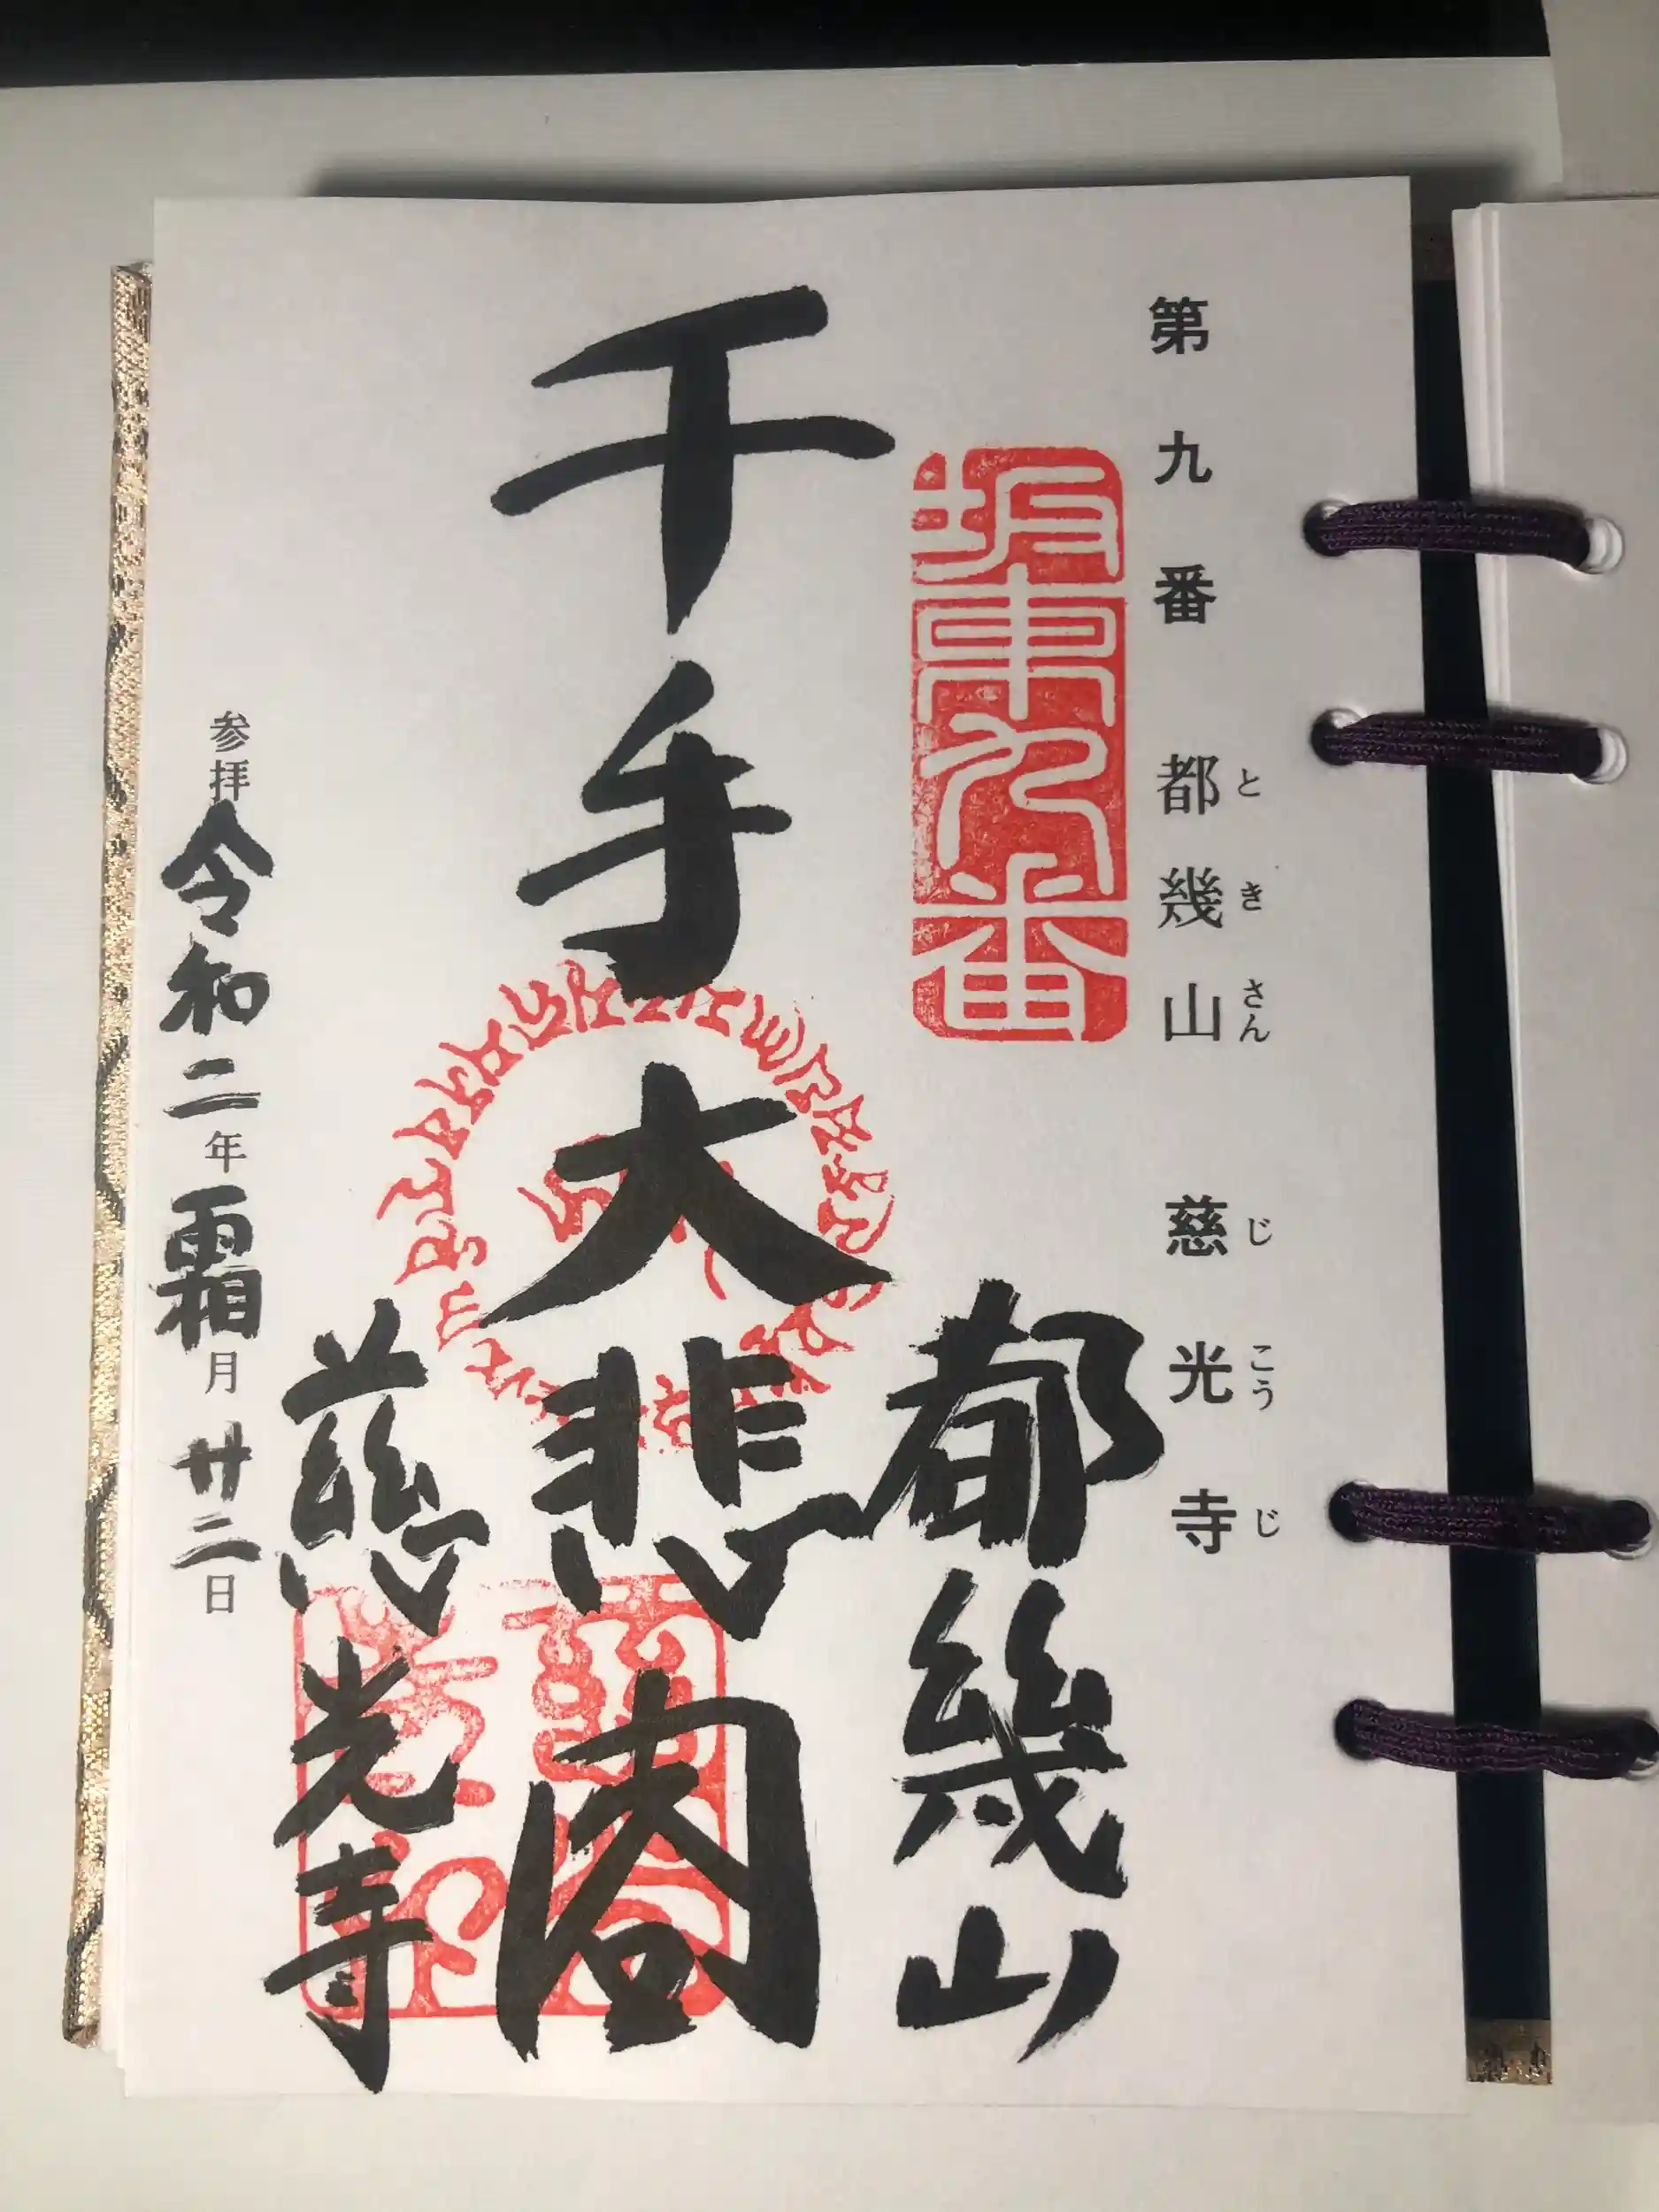 第九番 都幾山 慈光寺
と き さん じ こう じ
坂東九番
都幾山
千手大悲閣
慈光寺
参拝 令和二年霜月廿二日